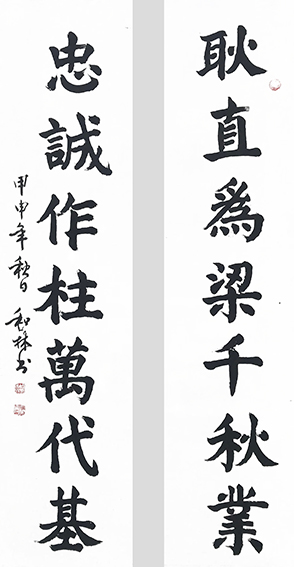 耿直爲梁千秋業
忠誠作柱萬代基
甲申年秋日 和林书